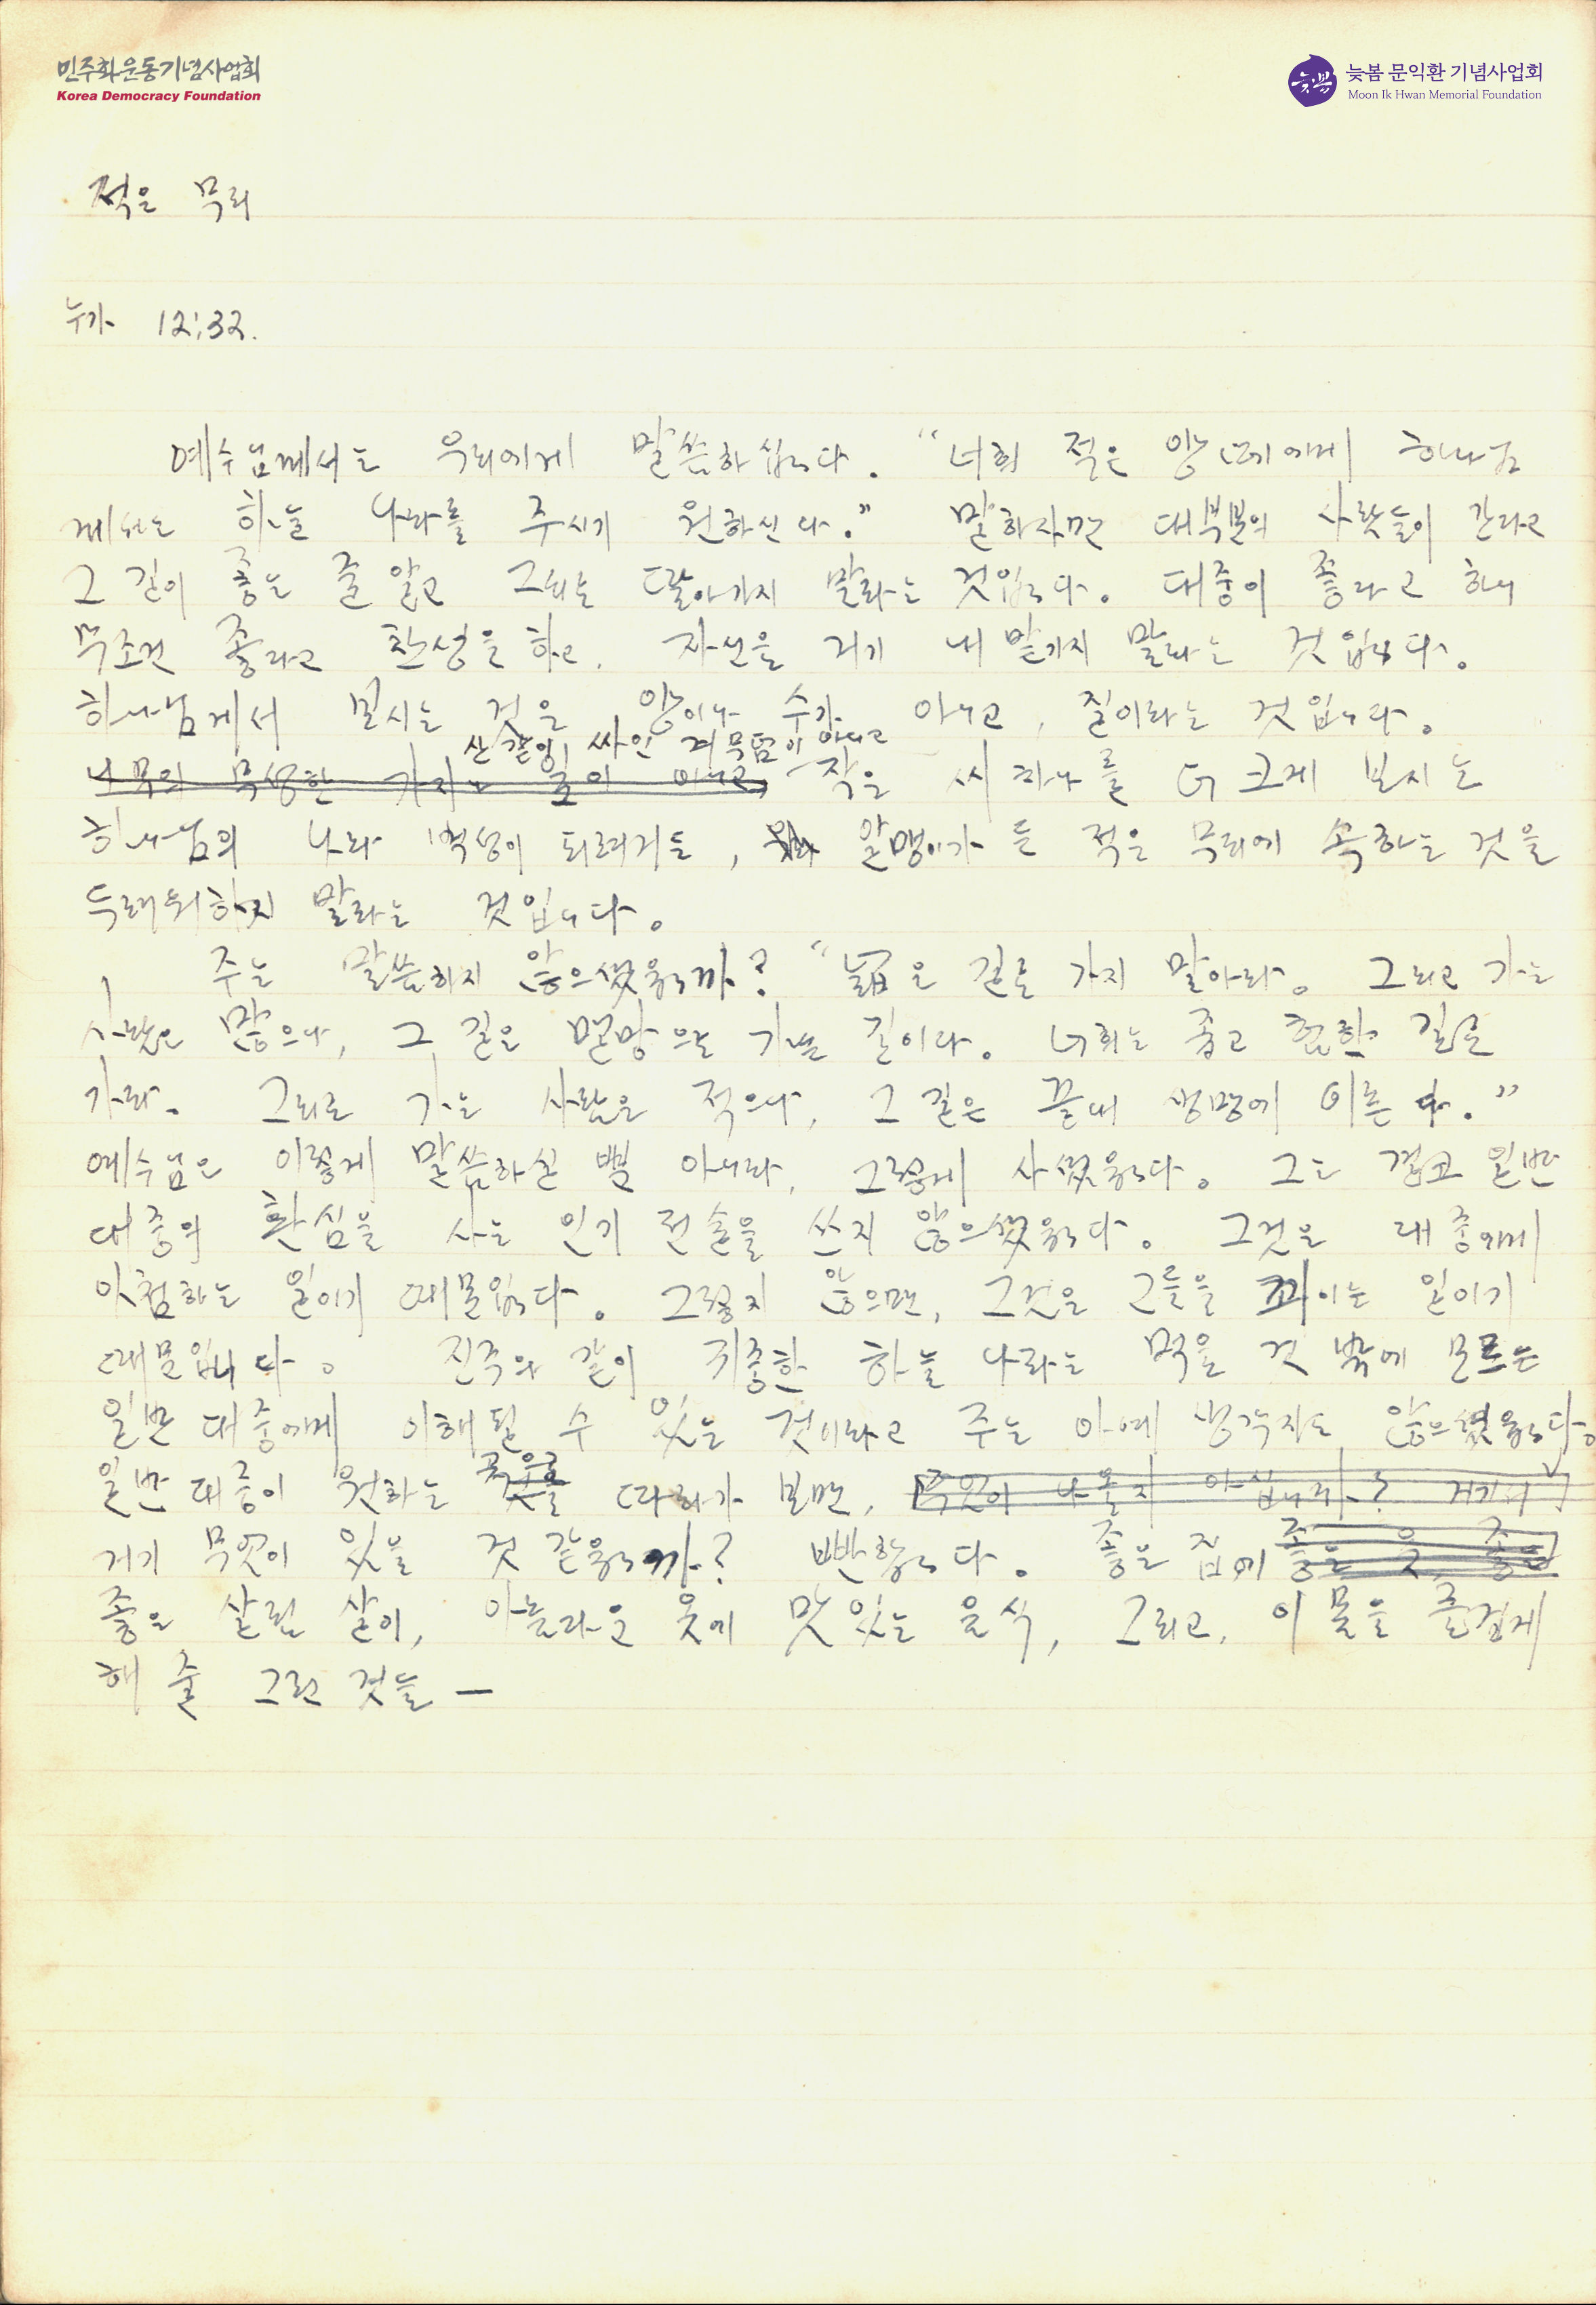 민주화운동기념사업회
Korea Democracy Foundation
늦봄 문익환 기념사업회
Moon Ik Hwan Memorial Foundation
적은 무리
누가 12:32.
예수님께서는 우리에게 말씀하십니다. “너희 적은 양떼에게 하나님
께서는 하늘 나라를 주시기 원하신다.” 말하자면 대부분의 사람들이 간다고
그 길이 좋은 줄 알고 그리로 따라가지 말라는 것입니다. 대중이 좋다고 하니
무조건 좋다고 찬성을 하고, 자신을 거기 내맡기지 말라는 것입니다.
하나님께서 보시는 것은 양이나 수가 아니고, 질이라는 것입니다.
산 같이 싸인 겨무덤이 아니고
나무의 무성한 가지나 잎이 아니고, 작은 씨 하나를 더 크게 보시는
하나님의 나라 백성이 되려거든, 알맹이가 든 적은 무리에 속하는 것을
두려워하지 말라는 것입니다.
주는 말씀하지 않으셨읍니까? “넓은 길로 가지 말아라. 그리고 가는
사람은 많으나, 그 길은 멸망으로 가는 길이다. 너희는 좁고 험한 길로
가라. 그리로 가는 사람은 적으나, 그 길은 끝내 생명에 이른다.”
예수님은 이렇게 말씀하실 뿐 아니라, 그렇게 사셨읍니다. 그는 결코 일반
대중의 환심을 사는 인기 전술을 쓰지 않으셨읍니다. 그것은 대중에게
아첨하는 일이기 때문입니다. 그렇지 않으면, 그것은 그들을 꾀이는 일이기
때문입니다. 진주와 같이 귀중한 하늘 나라는 먹을 것 밖에 모르는
일반 대중에게 이해될 수 있는 것이라고 주는 아예 생각지도 않으셨읍니다.
일반 대중이 원하는 것을 따라가 보면, 무엇이 나올지 아십니까? 거기서
거기 무엇이 있을 것 같읍니까? 빤합니다. 좋은 집에 좋은 옷, 좋은
좋은 살림 살이, 아름다운 옷에 맛있는 음식, 그리고, 이 몸을 즐겁게
해 줄 그런 것들 —